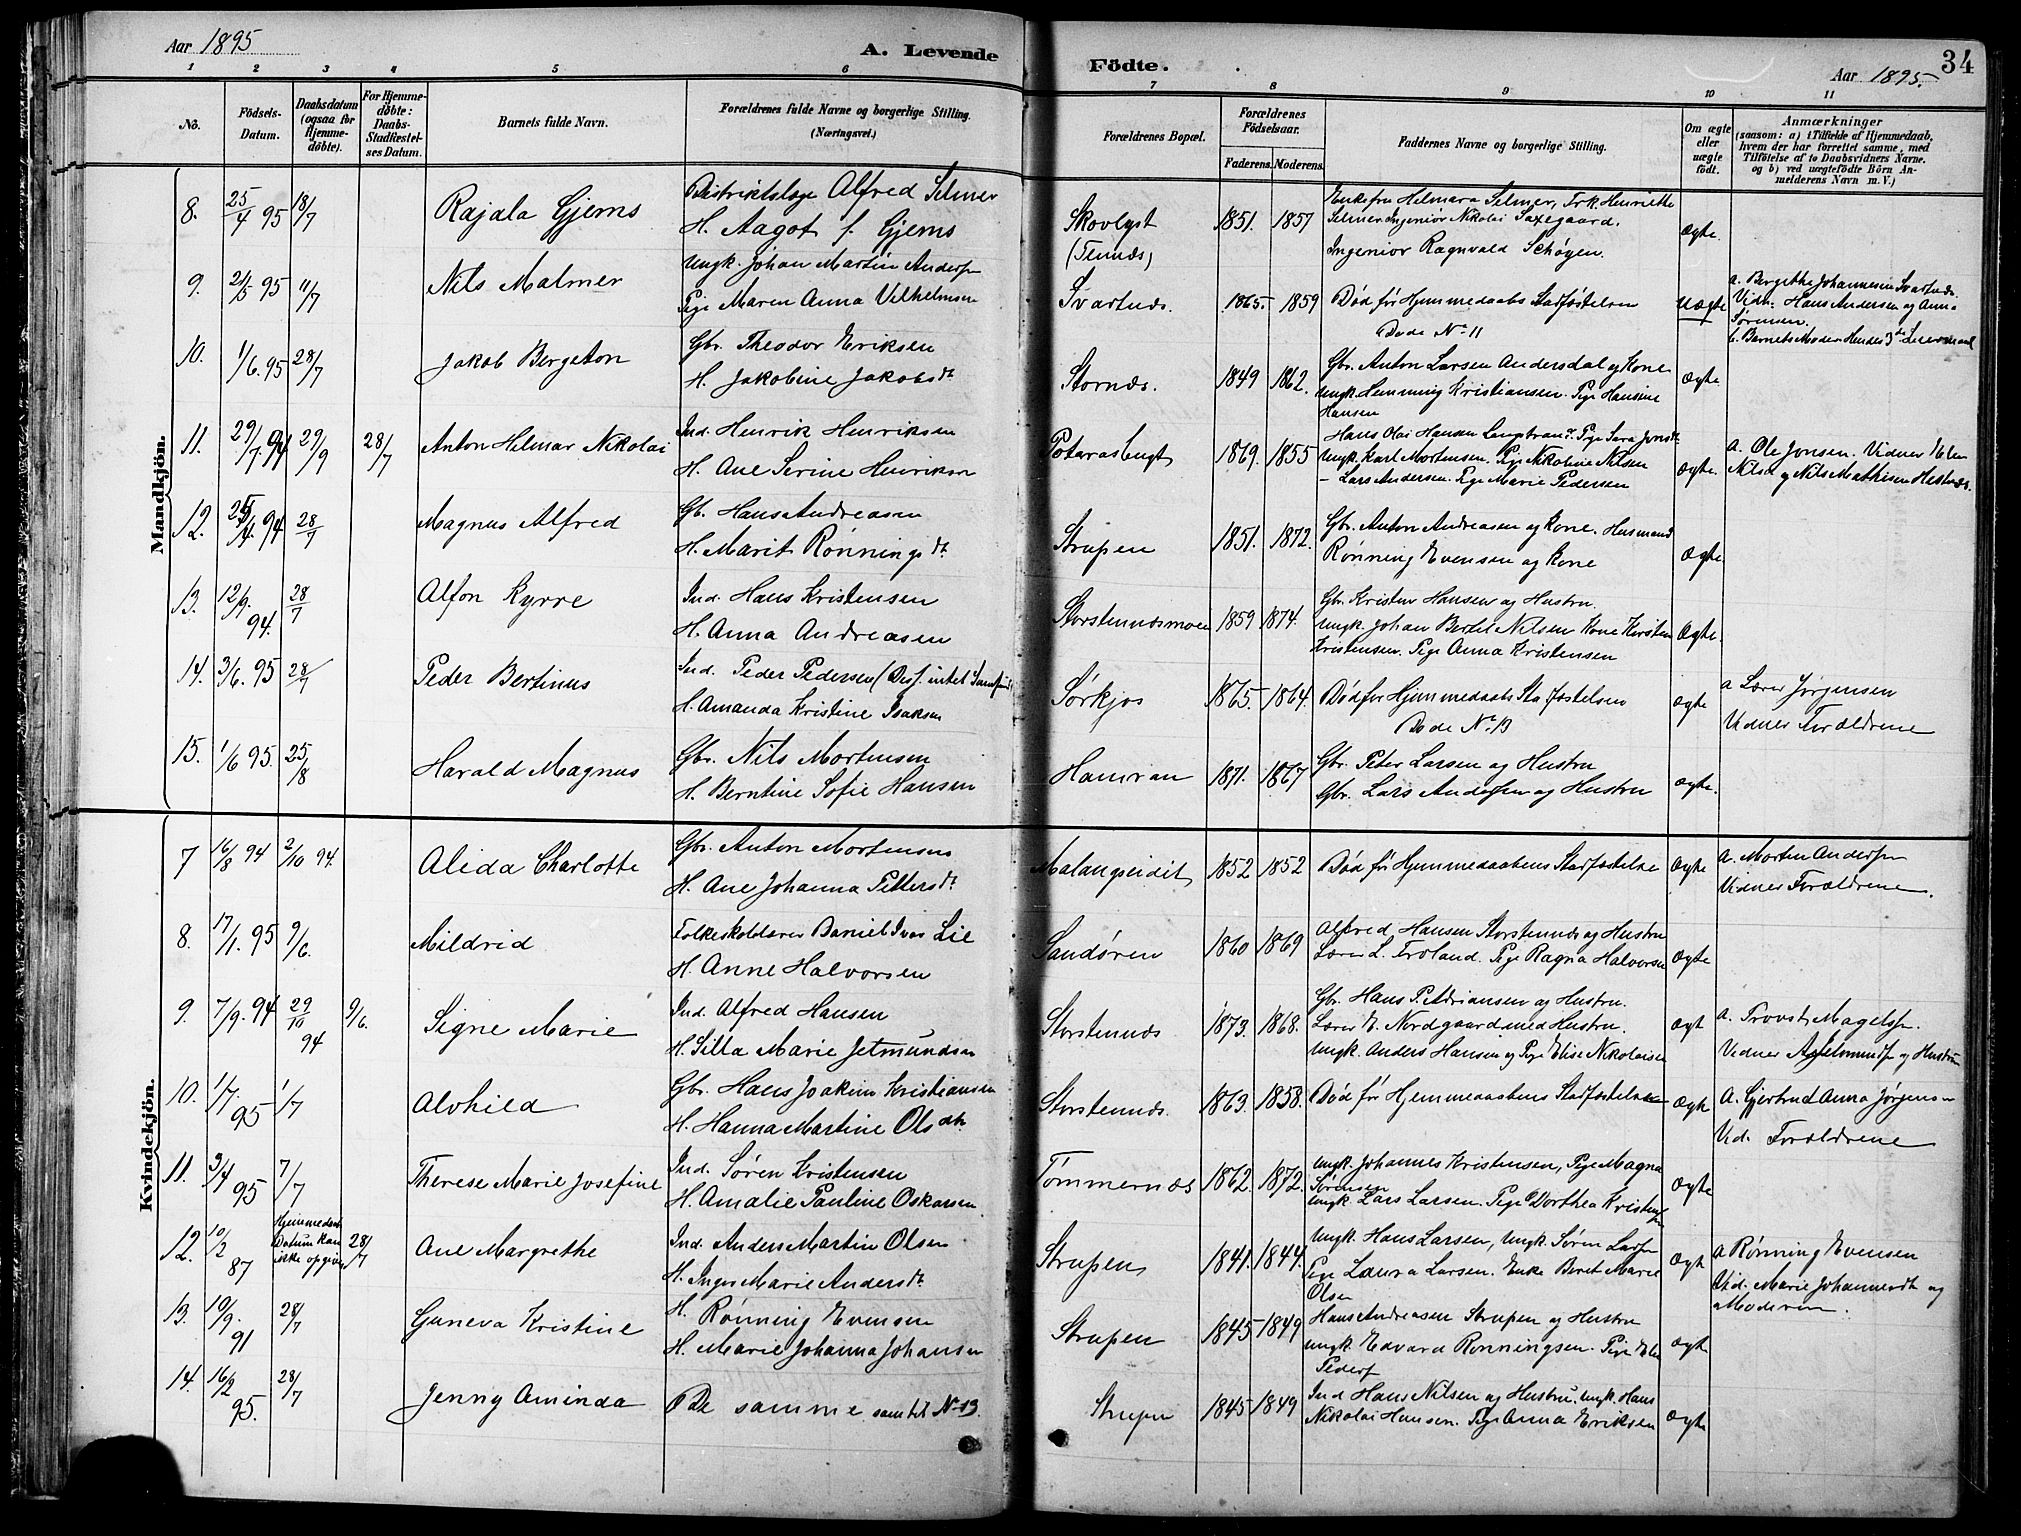 Aar 1895
A. Levende
Födte.
34
Aar 1895.
1 2 3 4 5 6 7 8 9 10 11
No.
Födsels-Datum.
Daabsdatum (ogsaa for Hjemmedöbte).
For Hjemmedöbte: Daabs-Stadfæstelses Datum.
Barnets fulde Navn.
Forældrenes fulde Navne og borgerlige Stilling.
(Næringsvei.)
Forældrenes Bopæl.
Forældrenes Födselsaar.
Faderens. Moderens.
Faddernes Navne og borgerlige Stilling.
Om ægte eller uægte födt.
Anmærkninger
(saasom: a) i Tilfælde af Hjemmedaab, hvem der har forrettet samme, med Tilföielse af to Daabsvidners Navne. og b) ved uægtefödte Börn Anmelderens Navn m. V.)
Mandkjön.
8. 25/4 95 18/7 Rajala Gjems
Distriktslæge Alfred Selmer
H. Aagot f. Gjems
Skovlyst
1851. 1857
Enkefru Helmara Selmer, Frk. Henriette
Selmer Ingeniør Nikolai Saxegaard.
Ingeniør Ragnvald Schøyen.
ægte.
9. 95 11/7 Nils Malmer
Ungk. Johan Martin Anders
Pige Maren Anna Vilhelmsen
Svartnæs.
1865. 1859
Død før Hjemmedaabs Stadfæstelsen
Døde No 11
Uægte
a. Bergithe Johannesen Svartnæs.
Vidn: Hans Andersen og Anna
Sørensen.
10. 1/6. 95 28/7 Jakob Bergeton
Gbr. Theodor Eriksen
H. Jakobine Jakobsdt
Stornæs.
1849 1862.
Gbr. Anton Larsen Andersdal og Kone
Ungk. Hemming Kristiansen. Pige Hansine
Hansen
Ægte
11. 29/7 94 29/9 28/7 Anton Hilmar Nikolai
Ind. Henrik Henriksen
H. Ane Serine Henriksen
1869. 1855
Hans Olai Hansen Pige Sara
Ungk. Karl Mortensen. Pige Nikoline Nilsen
- Lars Andersen. Pige Marie Pedersen
Ægte.
a. Ole Jonsen. Vidner Elen
Nilsd og Nils Mathisen
12. 94 28/7 Magnus Alfred
Gb. Hans Andreasen
H. Marit Rønningsdt.
Strupen
1851. 1872.
Gbr. Anton Andreasen og Kone. Husmand
Rønning Evensen og Kone
Ægte.
13. 12/9. 94. 28/7 Alfon Kyrre
Ind. Hans Kristensen
H. Anna Andreasen
Storstennæsmoen
1859 1874.
Gbr. Kristen Hansen og Hustru.
Ungk. Johan Bertel Nilsen Kone Kirsten
Kristensen. Pige Anna Kristensen
Ægte.
14. 3/6. 95 28/7 Peder Bertinus
Ind. Peder Pedersen
H. Amanda Kristine Isaksen
Sørkjos
1865. 1864.
Død før Hjemmedaabs Stadfæstelsen
Døde No 13
ægte
a Lærer Jørgensen
Vidner Forældrene
15. 1/6 95. 25/8 Harald Magnus
Gbr. Nils Mortensen
H. Berntine Sofie Hansen
Hamran
1871. 1867
Gbr. Peter Larsen og Hustru
Gbr. Lars Andersen og Hustru
ægte.
Kvindekjön.
7 16/8 94 2/10 94. Alida Charlotte
Gbr. Anton Mortensen
H. Ane Johanna Pettersdt.
Malangseidet
1852 1852
Død før Hjemmedaabens Stadfæstelse
Ægte
a. Morten Anders
Vidner Forældrene.
8. 17/1. 95 9/6. Mildrid
Folkeskolelærer Daniel Ivar Lie
H. Anne Halvorsen
Sandøren
1860 1869
Alfred Hansen Storstennæs og Hustru
Lærer L. Froland. Pige Ragna Halvorsen
Ægte
9. 7/9. 94 29/10 94 9/6. Signe Marie
Ind. Alfred Hansen
H. Silla Marie Jetmundsen
Storstennæs
1873. 1868.
Gbr. Hans P. Adriansen og Hustru.
Lærer E. Nordgaard med Hustru.
Ungk. Anders Hansen og Pige Elise Nikolaisen
Ægt
a. Provst Magels.
Vidner og Hustru
10. 1/7. 95 1/7 Alvhild
Gbr. Hans Joakim Kristiansen
H. Hanna Martine Olsdtr.
Storstennæs.
1863. 1858.
Død før Hjemmedaabens Stadfæstelse
Ægte
A. Gjertrud Anna Jørgens
Vid. Forældrene
11. 3/4 95 7/7 Therese Marie Josefine
Ind. Søren Kristensen
H. Amalie Pauline Oskarsen
Tømmernæs
1862. 1872.
Ungk. Johannes Kristensen, Pige Magna
Sørensen
Ungk. Lars Larsen. Pige Dorthea Kristens
Ægte
12. 10/2 87 Hjemmedaab Datum kan ikke opgives 28/7 Ane Margrethe
Ind. Anders Martin Olsen
H. Inger Marie Andersdt.
Strupen
1841. 1844.
Ungk. Hans Larsen, Ungk. Søren Lars
Pige Laura Larsen. Enke Beret Marie
Olsen
Ægt
a Rønning Evensen
Vid. Marie Johannesdt og
Moderen.
13. 10/9. 91 28/7 Geneva Kristine
H. Rønning Evensen
H. Marie Johanna Johansen
Strupen
1845 1849
Hans Andreasen Strupen og Hustru
Ungk. Edvard Rønningsen. Pige Elen
Peders
ægt
14. 16/2 95. 28/7 Jenny Aminda
De samme samtit No 13.
Strupen
1845 1849
Ind Hans Nilsen og Hustru. Ungk. Hans
Nikolai Hansen. Pige Anna Eriksen
ægte